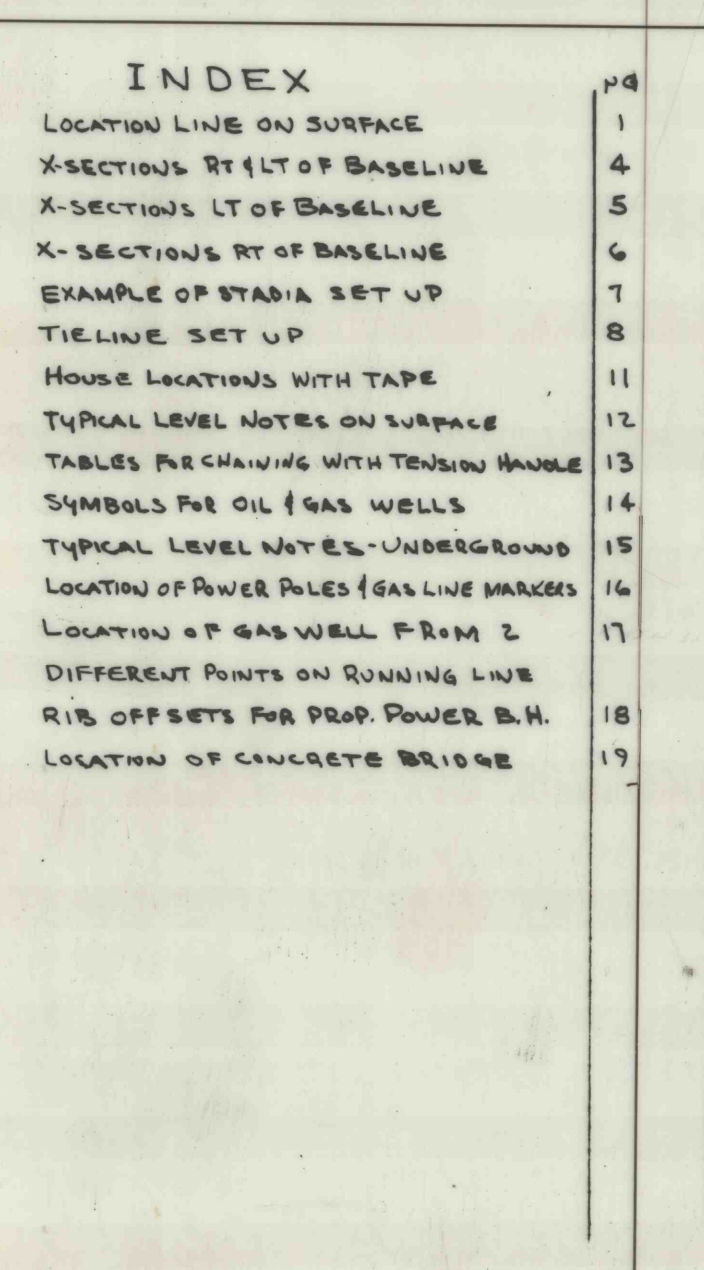 INDEX PG
LOCATION LINE ON SURFACE 1
X-SECTIONS RT & LT OF BASELINE 4
X-SECTIONS LT OF BASELINE 5
X-SECTIONS RT OF BASELINE 6
EXAMPLE OF STADIA SET UP 7
TIELINE SET UP 8
HOUSE LOCATIONS WITH TAPE 11
TYPICAL LEVEL NOTES ON SURFACE 12
TABLES FOR CHAINING WITH TENSION HANDLE 13
SYMBOLS FOR OIL & GAS WELLS 14
TYPICAL LEVEL NOTES-UNDERGROUND 15
LOCATION OF POWER POLES & GAS LINE MARKERS 16
LOCATION OF GAS WELL FROM 2 17
DIFFERENT POINTS ON RUNNING LINE
RIB OFFSETS FOR PROP. POWER B.H. 18
LOCATION OF CONCRETE BRIDGE 19